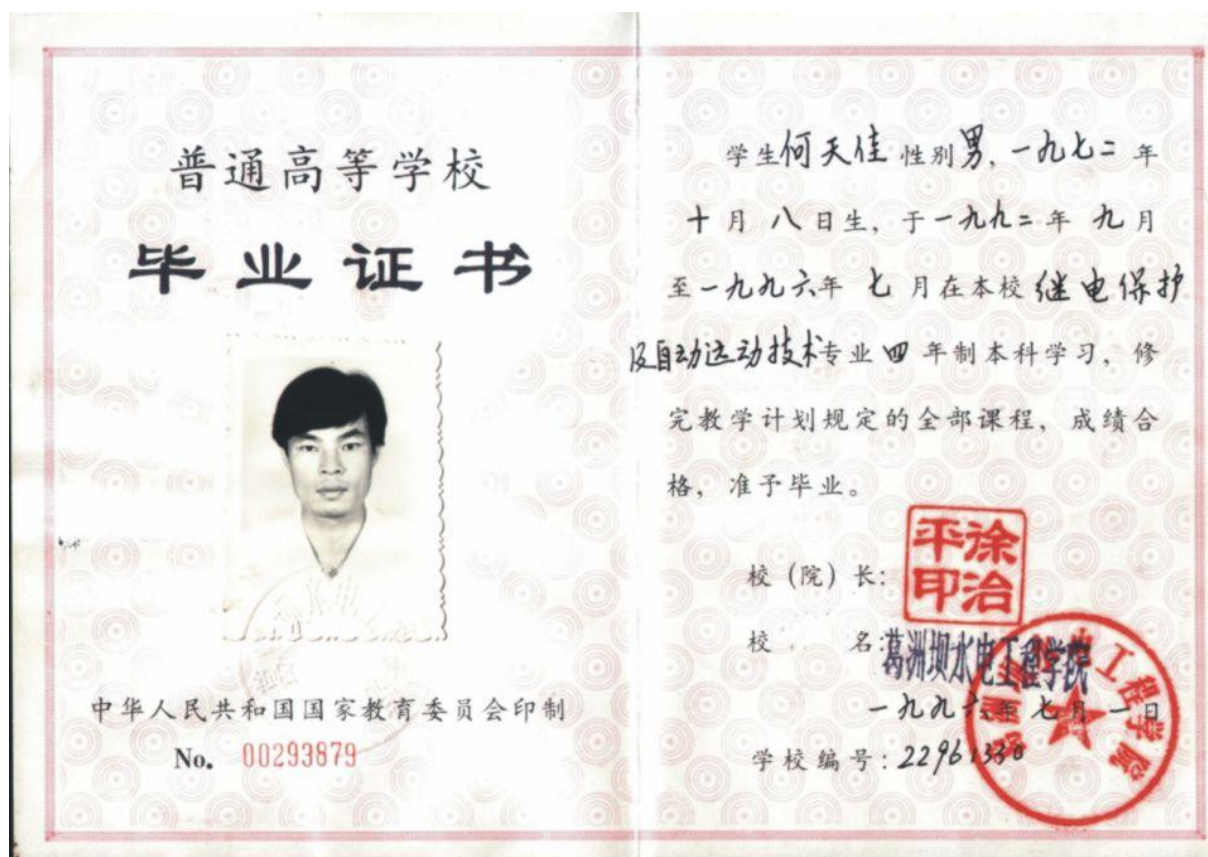 普通高等学校
毕业证书
中华人民共和国国家教育委员会印制
No. 00293879
学生何天佳性别男,一九七二年
十月八日生,于一九九二年九月
至一九九六年七月在本校继电保护
及自动运动技术专业四年制本科学习,修
完教学计划规定的全部课程,成绩合
格,准予毕业。
校(院)长:
徐治平印
校名:葛洲坝水电工程学院
一九九六年七月一日
学校编号:22961330
葛洲坝水电工程学院